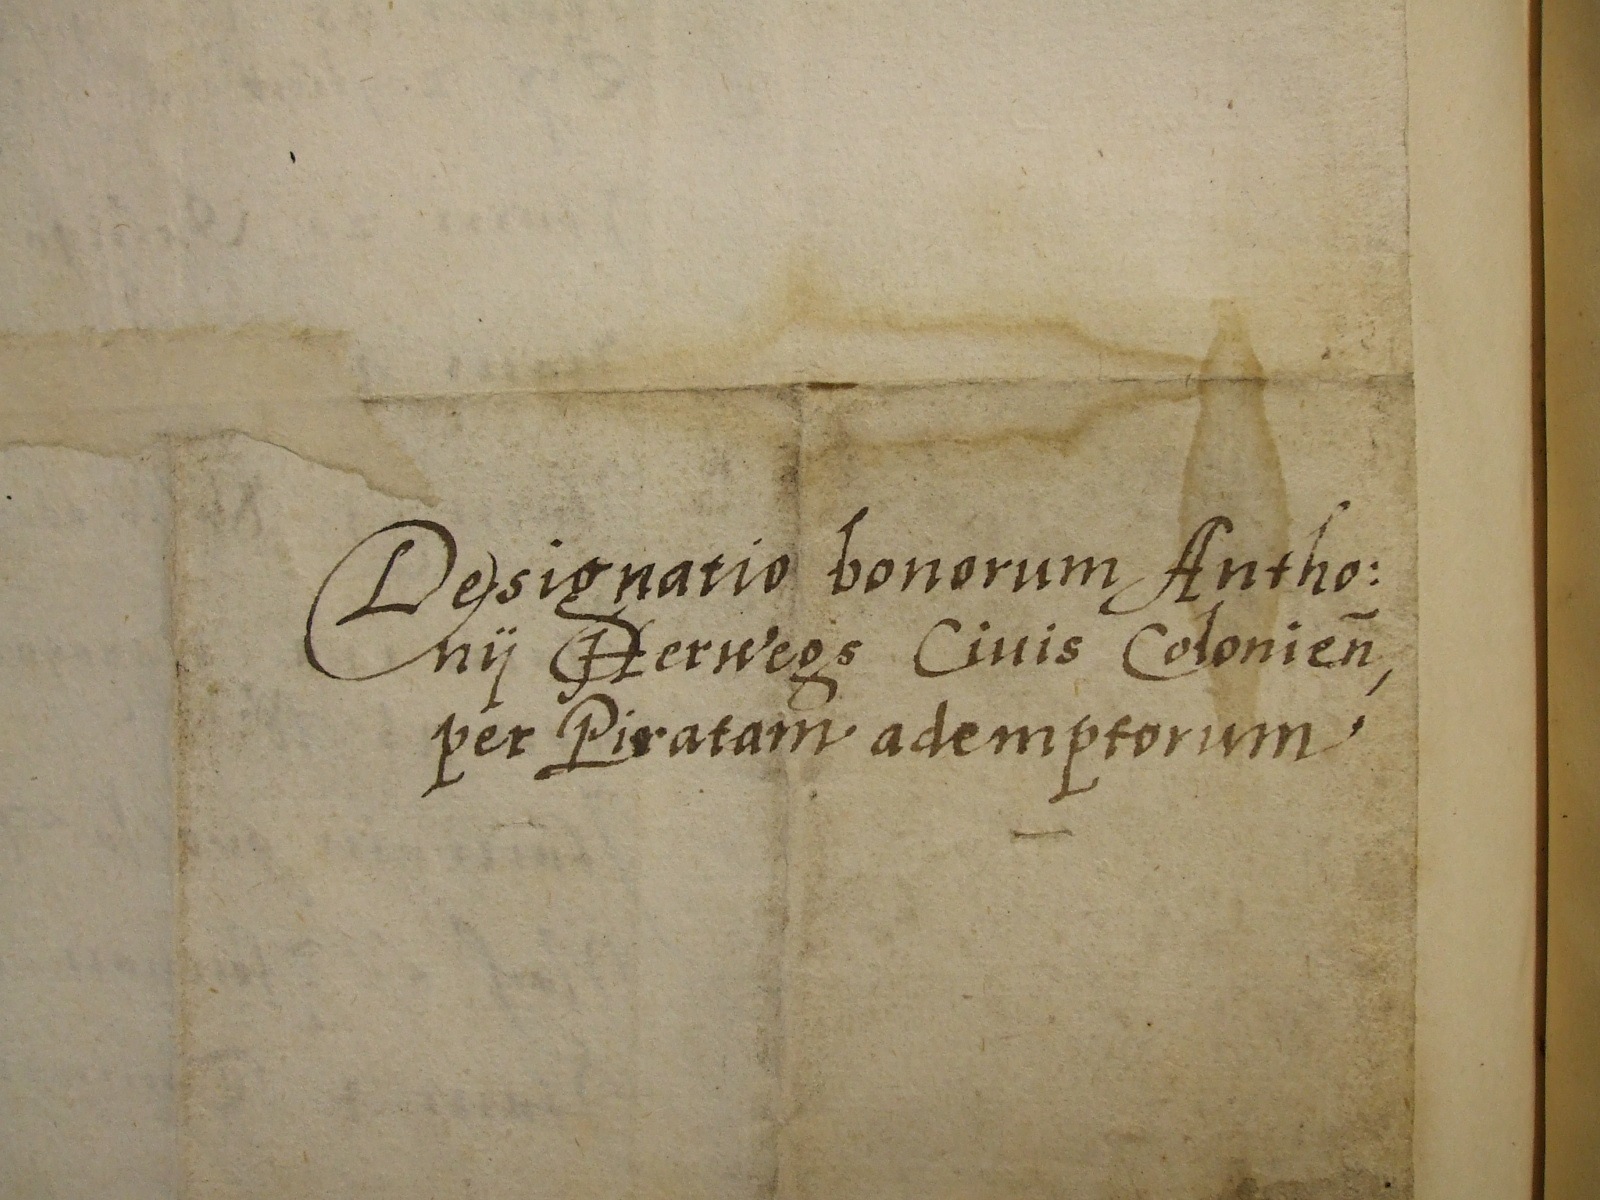 Designatio bonorum Antho:
nij Herwegs Ciuis Colonien̄,
per Piratam ademptorum